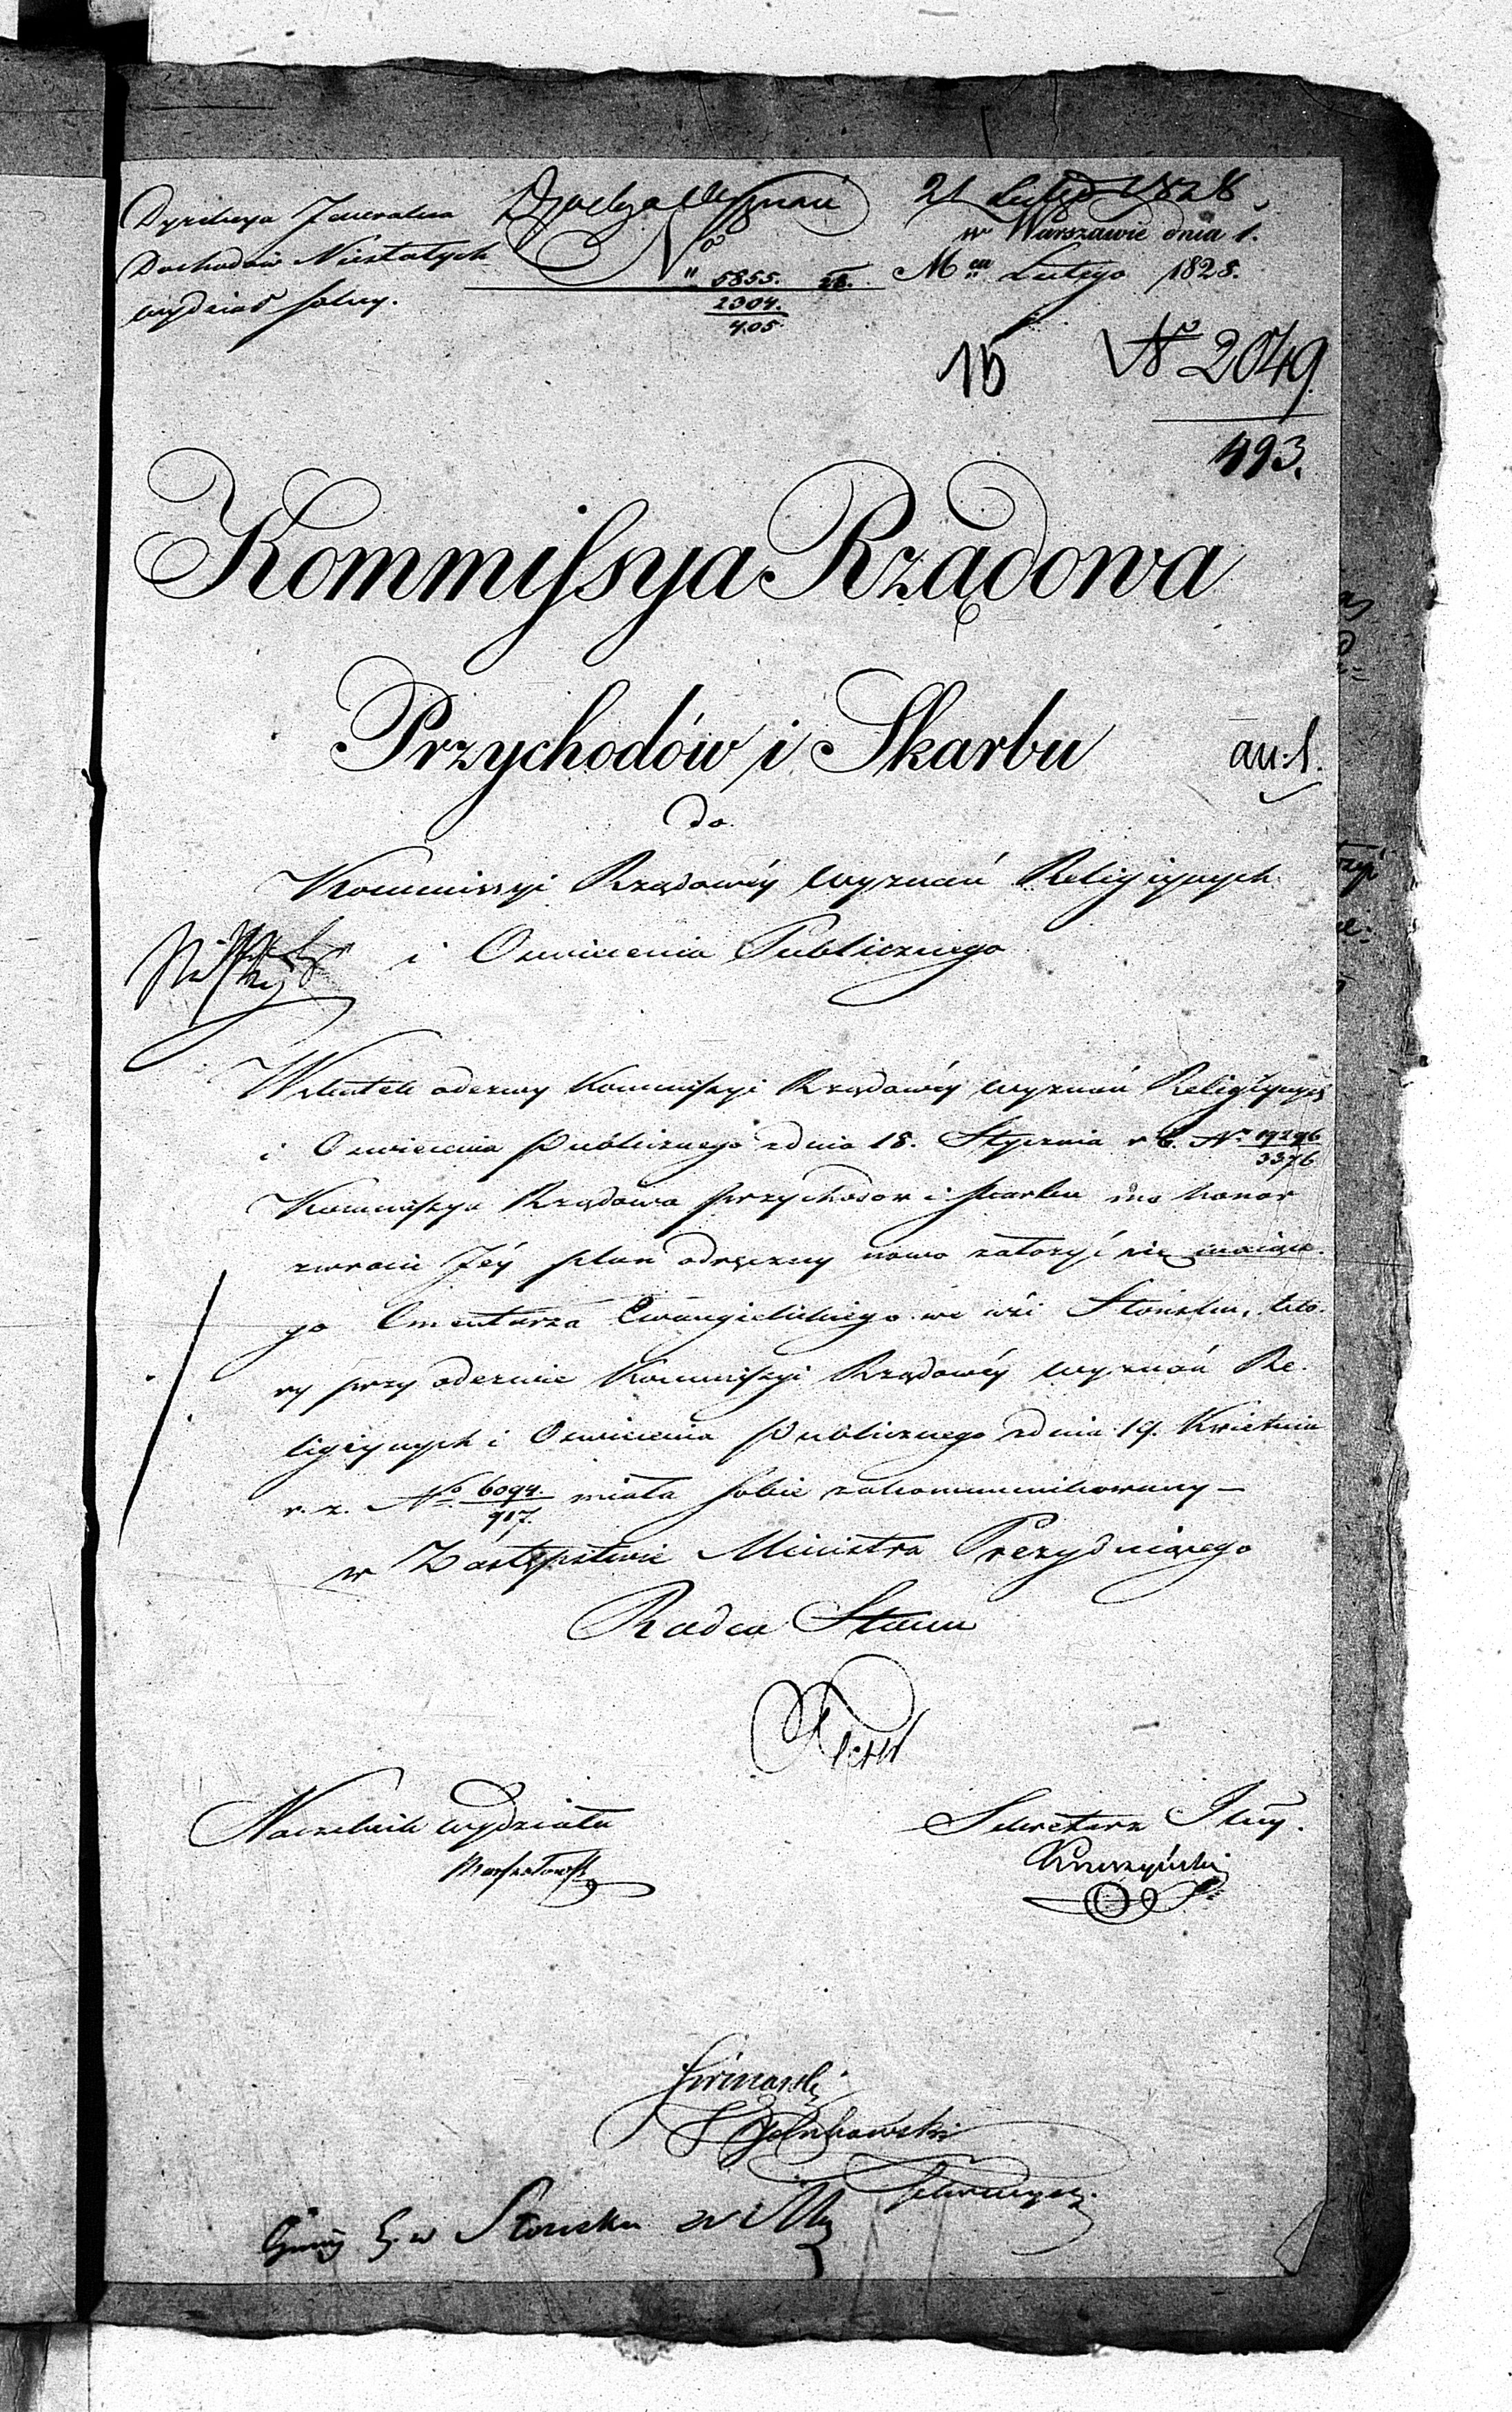 Dyrekcya Jeneralna
Dochodów Niestałych
wydział solny.
21 Lutego 1828.
w Warszawie dnia 1.
No 5855. 28.
2304.
405
Mca Lutego 1828.
15
No 2049
493.
Kommissya Rządowa
Przychodów i Skarbu
an: 1.
do
Kommissyi Rządowéy Wyznań Religiynych
i Oswiecenia Publicznego
Wskutek odezwy Kommissyi Rządowéy Wyznań Religiynych
i Oswiecenia Publicznego zdnia 18. Stycznia r b. No 19296
3376
Kommissya Rządowa Przychodow i Skarbu ma honor
zwrocić Jéy plan odręczny nowo założyć się maiące-
go Cmentarza Ewangelickiego we wsi Słońsku, któ-
ry przy odezwie Kommissyi Rządowéy Wyznań Re-
ligiynych i Oswiecenia Publicznego zdnia 19. Kwietnia
r. z. No 6094.
917.
miała sobie zakommunikowany —
w Zastępstwie Ministra Prezyduiącego
Radca Stanu
Naczelnik Wydziału
Sekretarz Jlny.
w Słonsku